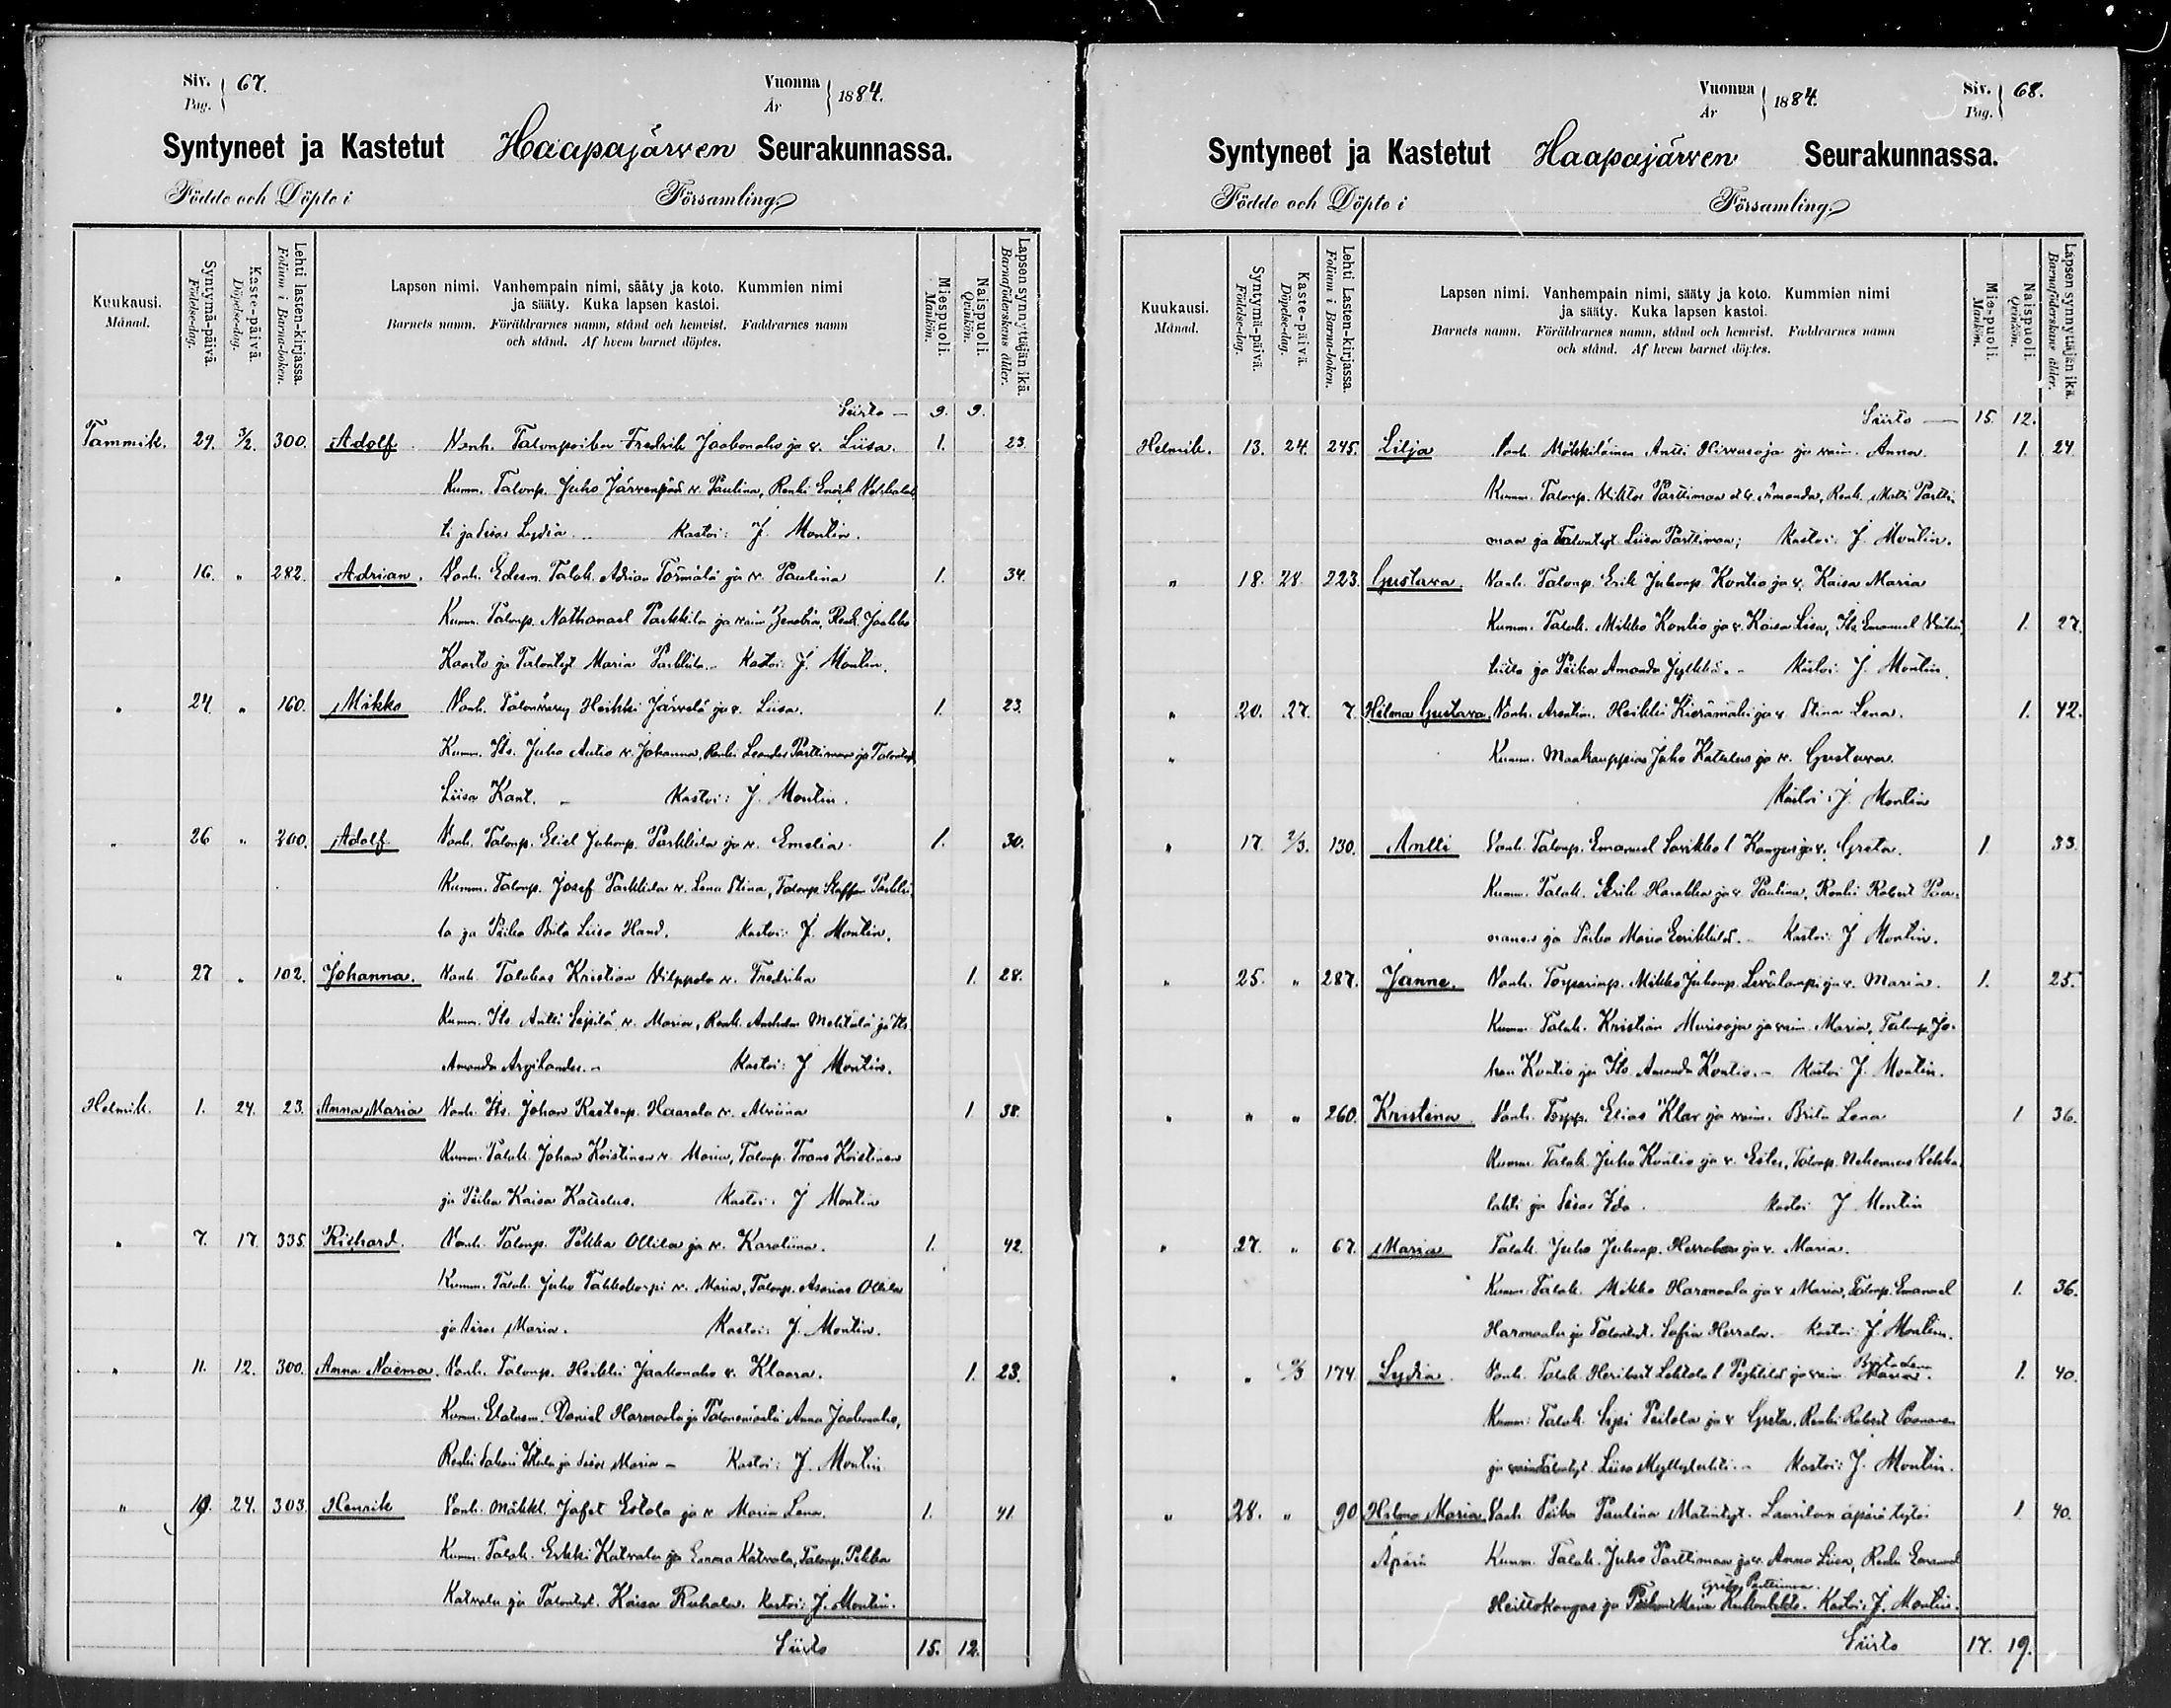 Siv. 67.
Pag.
Vuonna 1884.
År
Syntyneet ja Kastetut Haapajärven Seurakunnassa.
Födde och Döpte i Församling.
Kuukausi.
Månad.
Syntymä-päivä.
Födelse-dag.
Kaste-päivä.
Döpelse-dag.
Lehti lasten-kirjassa.
Folium i Barna-boken.
Lapsen nimi. Vanhempain nimi, sääty ja koto. Kummien nimi
ja sääty. Kuka lapsen kastoi.
Barnets namn. Föräldrarnes namn, stånd och hemvist. Faddrarnes namn
och stånd. Af hvem barnet döptes.
Miespuoli.
Mankön.
Naispuoli.
Qvinkön.
Lapsen synnyttäjän ikä.
Barnaföderskans ålder.
Siirto — 9. 9.
Tammik. 29. 3/2. 300. Adolf Vanh. Talonpoika Fredrik Jaakonaho ja v. Liisa. 1. 23.
Kumm. Talonp. Juho Järvenpää v. Paulina, Renki
ti ja sisar Lydia. Kastoi: J. Montin.
" 16. " 282. Adrian. Vanh. Edesm. Talok. Adrian Törmälä ja v. Paulina 1. 34.
Kumm. Talonp. Nathanael Parkkila ja vaim. Renk. Jaakko
Kaarto ja Talontyt. Maria Parkkila. Kastoi: J. Montin.
" 24. " 160. Mikko Vanh. Talonvävy Heikki Järvelä ja v. Liisa. 1. 23.
Kumm. Its. Juho Autio v. Johanna, Renki Leander Parttimaa ja Talontyt.
Liisa Kant. Kastoi: J. Montin.
" 26 " 200. Adolf Vanh. Talonp. Eliel Juhonp. Parkkila ja v. Emelia. 1. 30.
Kumm. Talonp. Josef Parkkila v. Lena Stina, Talonp. Staffan Parkki
la ja Piika Brita Liisa Hand. Kastoi: J. Montin.
" 27 " 102. Johanna. Vanh. Talokas Kristian Vilppola v. Fredrika 1. 28.
Kumm. Its. Antti Seppilä v. Maria, Renk.
Amanda Kastoi: J. Montin.
Helmik. 1. 24. 23. Anna Maria Vanh. Its. Johan Haarala v. 1 38.
Kumm. Talok. Johan Koistinen v. Maria, Talonp. Frans Koistinen
ja Piika Kaisa Kastoi. J. Montin
" 7. 17. 335. Richard. Vanh. Talonp. Pekka Ollila ja v. Karoliina. 1. 42.
Kumm. Talok. Juho v. Maria, Talonp. Asarias Ollila
ja sisar Maria. Kastoi: J. Montin.
" 11. 12. 300. Anna Naema. Vanh. Talonp. Heikki Jaakonaho v. Klaara. 1. 23.
Kumm. Daniel Harmaala ja Talonemäntä Anna Jaakonaho,
Renki ja sisar Maria — Kastoi: J. Montin
" 19. 24. 303. Henrik Vanh. Mökkl. Jafet Estola ja v. Maria Lena. 1. 41.
Kumm. Talok. Erkki Katvala ja Emma Katvala, Talonp. Pekka
Katvala ja Talontyt. Kaisa Ruhala. Kastoi: J. Montin.
Siirto 15. 12.
Vuonna 1884.
År
Siv. 68.
Pag.
Syntyneet ja Kastetut Haapajärven Seurakunnassa.
Födde och Döpte i Församling.
Kuukausi.
Månad.
Syntymä-päivä.
Födelse-dag.
Kaste-päivä.
Döpelse-dag.
Lehti Lasten-kirjassa.
Folium i Barna-boken.
Lapsen nimi. Vanhempain nimi, sääty ja koto. Kummien nimi
ja sääty. Kuka lapsen kastoi.
Barnets namn. Föräldrarnes namn, stånd och hemvist. Faddrarnes namn
och stånd. Af hvem barnet döptes.
Mies-puoli.
Mankön.
Naispuoli.
Qvinkön.
Lapsen synnyttäjän ikä.
Barnaföderskans ålder.
Siirto — 15. 12.
Helmik. 13. 24. 245. Lilja Vanh. Mökkiläinen Antti Hirvasoja ja vaim. Anna. 1. 24.
Kumm. Talonp. Viktor Parttimaa v. Amanda, Renk. Matti Partti
maa ja Talontyt. Liisa Parttimaa; Kastoi: J. Montin.
" 18. 28. 223. Gustava. Vanh. Talonp. Erik Juhonp. Kontio ja v. Kaisa Maria
Kumm. Talok. Mikko Kontio ja v. Kaisa Liisa, Its. Emanuel 1. 27.
ja Piika Amanda Jylkkä. Kastoi: J. Montin.
" 20. 27. 7. Helma Gustava. Vanh. Heikki Kierämäki ja v. Stina Lena. 1. 42.
" Kumm. Maakauppias Juho ja v. Gustava.
Kastoi: J. Montin
" 17. 2/3. 130. Antti Vanh. Talonp. Emanuel Savikko l. Kangas ja v. Greta. 1. 33.
Kumm. Talok. Erik Harakka ja v. Paulina, Renki Robert Paa-
nanen ja Piika Maria Kastoi: J. Montin.
" 25. " 287. Janne. Vanh. Mikko Juhonp. Levälampi ja v. Maria. 1. 25.
Kumm. Talok. Kristian Murisoja ja vaim. Maria, Talonp. Jo-
han Kontio ja Its. Amanda Kontio. Kastoi J. Montin.
" " " 260. Kristina. Vanh. Torpp. Elias Klar ja vaim. Brita Lena 1 36.
Kumm. Talok. Juho Kontio ja v. Ester, Talonp. Nehemias Vehka
lahti ja Sisar Ida. Kastoi J. Montin
" 27. " 67. Maria Talok. Juho Juhonp. Herrala ja v. Maria.
Kumm. Talok. Mikko Harmaala ja v. Maria, Talonp. Emanuel 1. 36.
Harmaala ja Talontyt. Sofia Herrala. Kastoi: J. Montin.
" " 9/3 174. Lydia. Vanh. Talok. Heribert Lehtola l. ja vaim. Brita Lena 1. 40.
Kumm. Talok. Sipi Peilola ja v. Greta, Renki Robert Paananen
ja Talontyt. Liisa Myllylahti. Kastoi: J. Montin.
" 28. " 90 Helma Maria Vanh. Piika Paulina Matintyt. Laurilan äpärä tytär 1 40.
Äpärä Kumm. Talok. Juho Parttimaa ja v. Anna Liisa, Renki Emanuel
Greta Parttimaa.
Heittokangas ja Kastoi: J. Montin.
Siirto 17. 19.